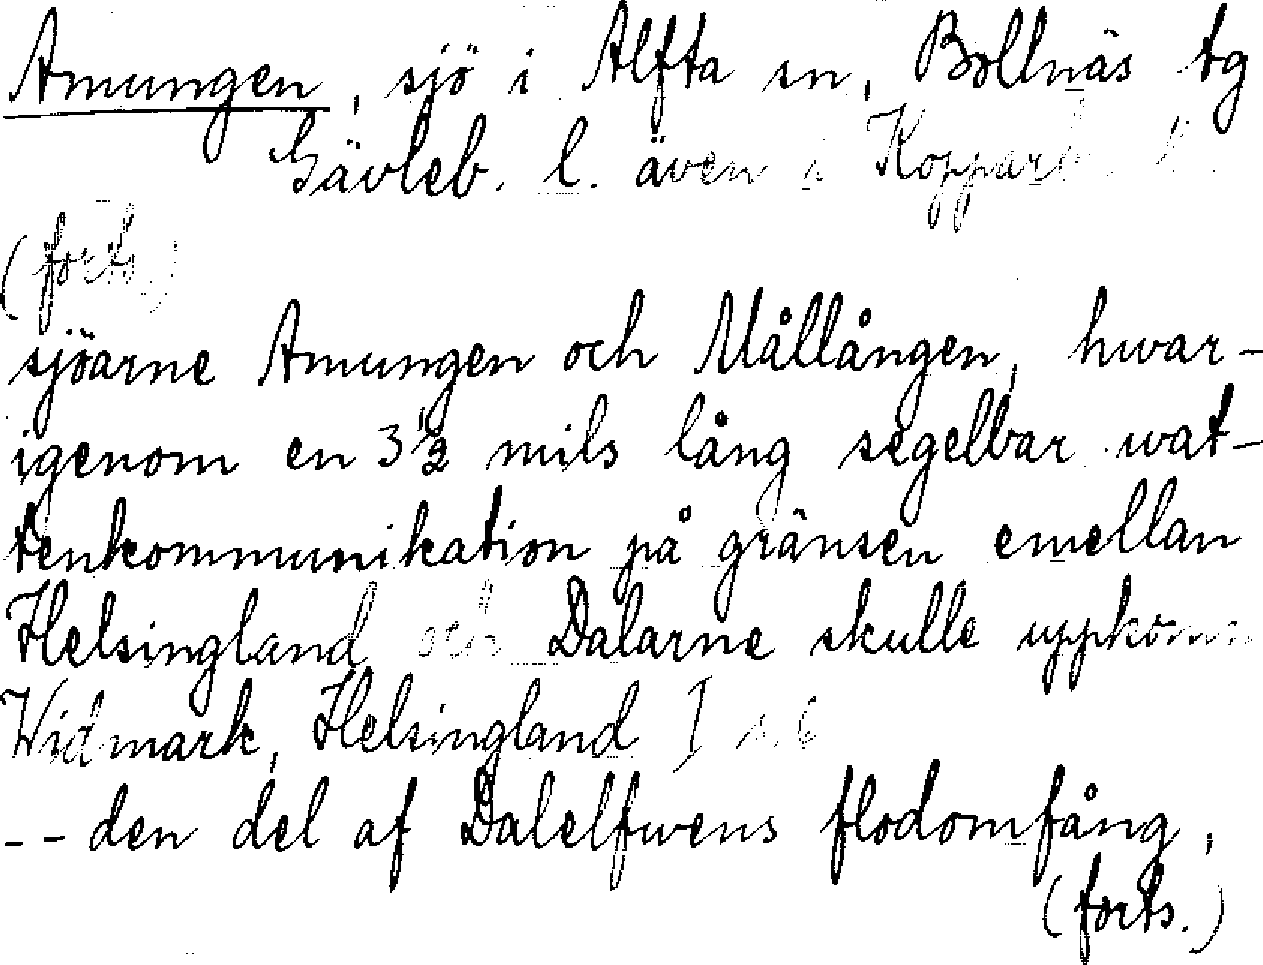 Amungen, sjö i Alfta sn, Bollnäs tg
Gävleb. l. även i Kopparb. l.
(forts.)
sjöarne Amungen och Mållången, hwar-
igenom en 3 1/2 mils lång segelbar wat-
tenkommunikation på gränsen emellan
Helsingland och Dalarne skulle uppkomm
Widmark, Helsingland I s. 6
-- den del af Dalelfwens flodomfång,
(forts.)